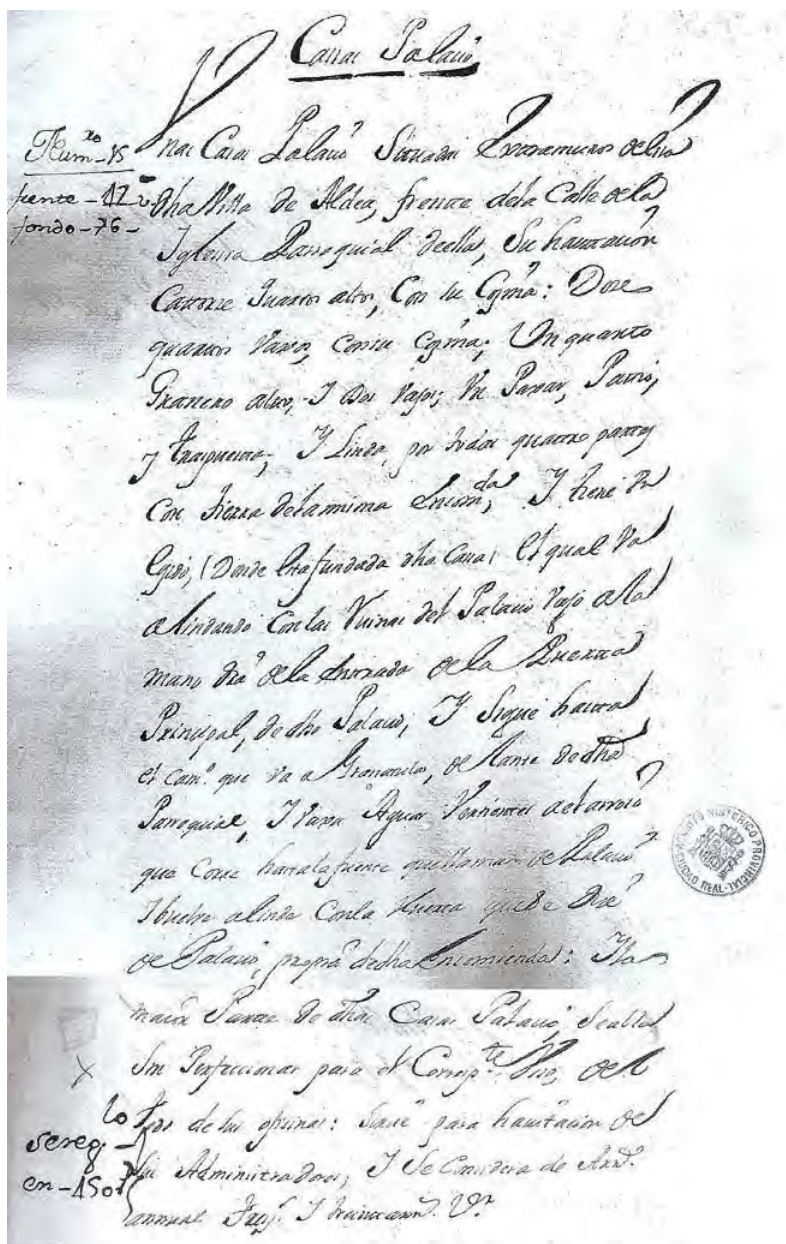 Casa Palacio
Numº 15
frente - 42 v
fondo - 76 -
Una Casa Palacio Situada Extramuros de
dha Villa de Aldea, frente dela Calle dela
Iglesia Parroquial deella, Su havitación
Catorze quartos altos, Con su Cozina: Doze
quartos vaxos, Consu Cozina; Un quarto
Granero alto, I Dos vajos; Un Paxar, Patio,
y traspuerta; Y Linda, por todas quatro partes
Con tierra dela misma Encomda, I tiene Un
Egido, (Donde Esta fundada dha Casa) el qual va
alindando Con las Ruinas del Palacio vajo ala
mano dra dela Entrada dela Puerta
Principal, de dho Palacio, I Sigue hasta
el camº que va a Granatula, delante de dha
Parroquial, I vaxa Aguas Vertientes alarroio
que Corre hasta la fuente que llaman de Palacio
I buelve alinda Conla Huerta que se Dize
de Palacio, propia dedha Encomienda: Y la
maior Parte de dha Casa Palacio, Sealla
Sin Perfeccionar para el Correspte Uso, de
los de sus oficinas: Sirve para havitación de
sus Administradores, I Se Considera de
annual I
lo
sereg.
en - 150
HISTORICO PROVINCIAL
CIUDAD REAL